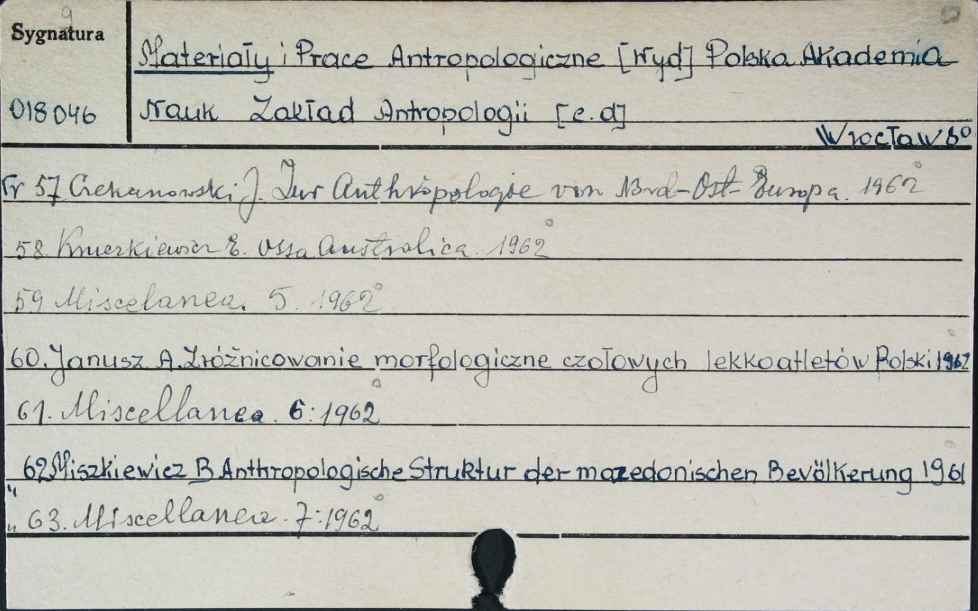 9
Sygnatura
Materiały i Prace Antropologiczne [Wyd] Polska Akademia
018046 Nauk Zakład Antropologii [c.d]
Wrocław 8°
Nr 57 Czekanowski J. Zur Anthropologie von Nord-Ost-Europa. 1962
58. E. Ossa Australica. 1962
59 Miscelanea. 5. 1962
60. Janusz A. Zróżnicowanie morfologiczne czołowych lekkoatletów Polski 1962
61. Miscellanea. 6: 1962
62 Miszkiewicz B Anthropologische Struktur der mazedonischen Bevölkerung 1961
" 63. Miscellanea. 7: 1962